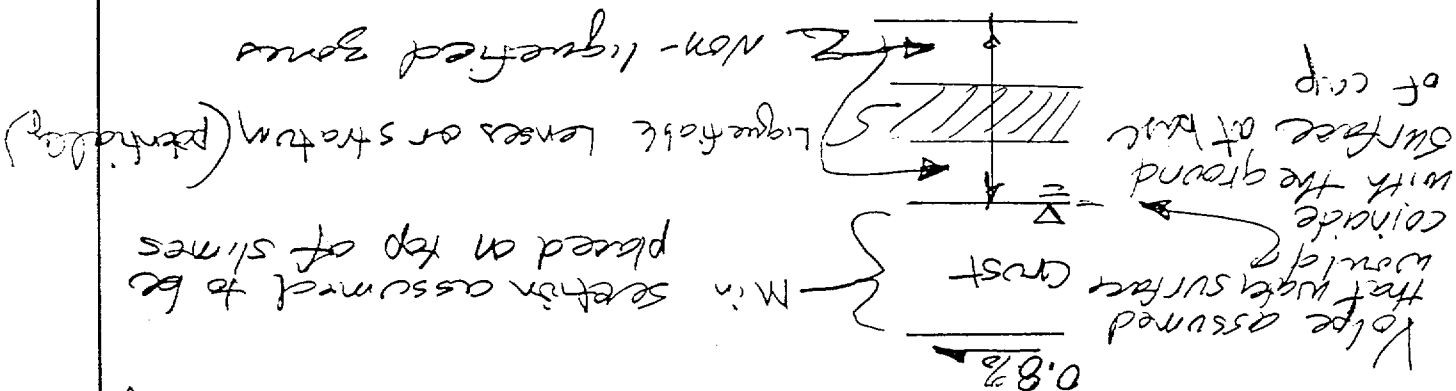 0.8%
Volpe assumed
that water surface
would
coincide
with the ground
surface at base
of cap
Crust
Min section assumed to be
placed on top of slimes
Liquefiable lenses or stratum (potentially)
Non-liquefied zones